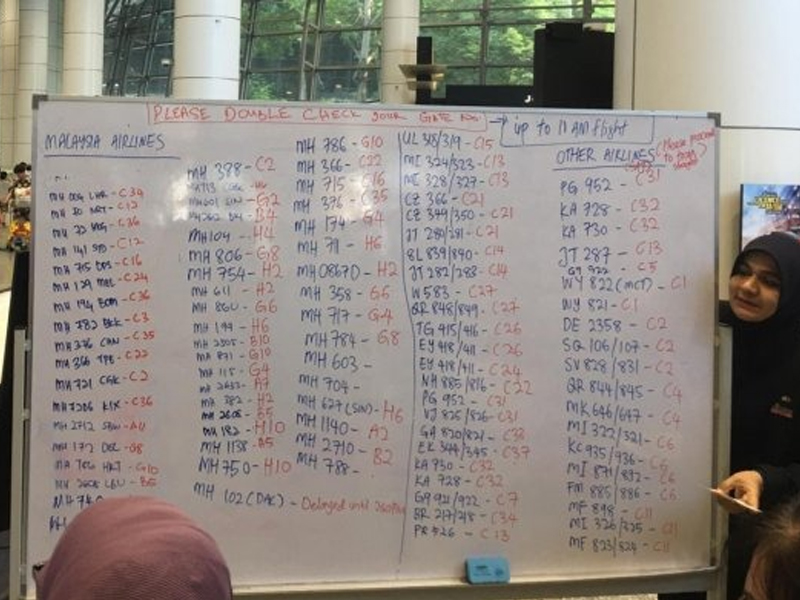 PLEASE DOUBLE CHECK YOUR GATE NO.
up to 11 AM flight
MALAYSIA AIRLINES
MH 004 LHR - C34
MH 70 NRT - C12
MH 72 HKG - C36
MH 141 SYD - C12
MH 715 DPS - C16
MH 129 MEL - C24
MH 194 BOM - C36
MH 782 BKK - C3
MH 376 CAN - C35
MH 366 TPE - C22
MH 721 CGK - C2
MH 7206 KIX - C36
MH 2712
MH 172 DEL - G8
HKT - G10
MH 2606 LBU - B5
MH 388 - C2
G2
B4
MH 104 - H4
MH 806 - G8
MH 754 - H2
MH 611 - H2
MH 860 - G6
MH 199 - H6
MH 2505 - B10
MH 871 - G10
MH 115 - G4
MH 2633 - A7
MH 782 - H2
MH 2605 - B5
MH 182 - H10
MH 1138 - B5
MH 750 - H10
MH 102 (DAC) - Delayed until
MH 786 - G10
MH 366 - C22
MH 715 - C16
MH 376 - C35
MH 174 - G4
MH 711 - H6
MH 0867D - H2
MH 358 - G6
MH 717 - G4
MH 784 - G8
MH 603 -
MH 704 -
MH 627 (SIN) - H6
MH 1140 - A2
MH 2710 - B2
MH 788 -
UL 318/319 - C15
MI 324/323 - C13
MI 328/327 - C13
CZ 366 - C21
CZ 349/350 - C21
JT 280/281 - C21
8L 839/840 - C14
JT 282/283 - C14
W5 83 - C27
QR 848/849 - C27
TG 415/416 - C26
EY 418/411 - C26
EY 418/411 - C24
NH 885/816 - C22
PG 952 - C31
VJ 825/826 - C31
GA 820/821 - C33
EK 344/345 - C37
KA 730 - C32
KA 728 - C32
G9 921/922 - C7
BR 217/218 - C34
PR 526 - C13
OTHER AIRLINES
Please proceed to
PG 952 - C31
KA 728 - C32
KA 730 - C32
JT 287 - C13
G9 922 - C5
WY 822 (MCT) - C1
WY 821 - C1
DE 2358 - C2
SQ 106/107 - C2
SV 828/831 - C2
QR 844/845 - C4
MK 646/647 - C4
MI 322/321 - C6
KC 935/936 - C6
MI 871/892 - C6
FM 885/886 - C6
MF 898 - C11
MI 326/325 - C11
MF 823/824 - C11